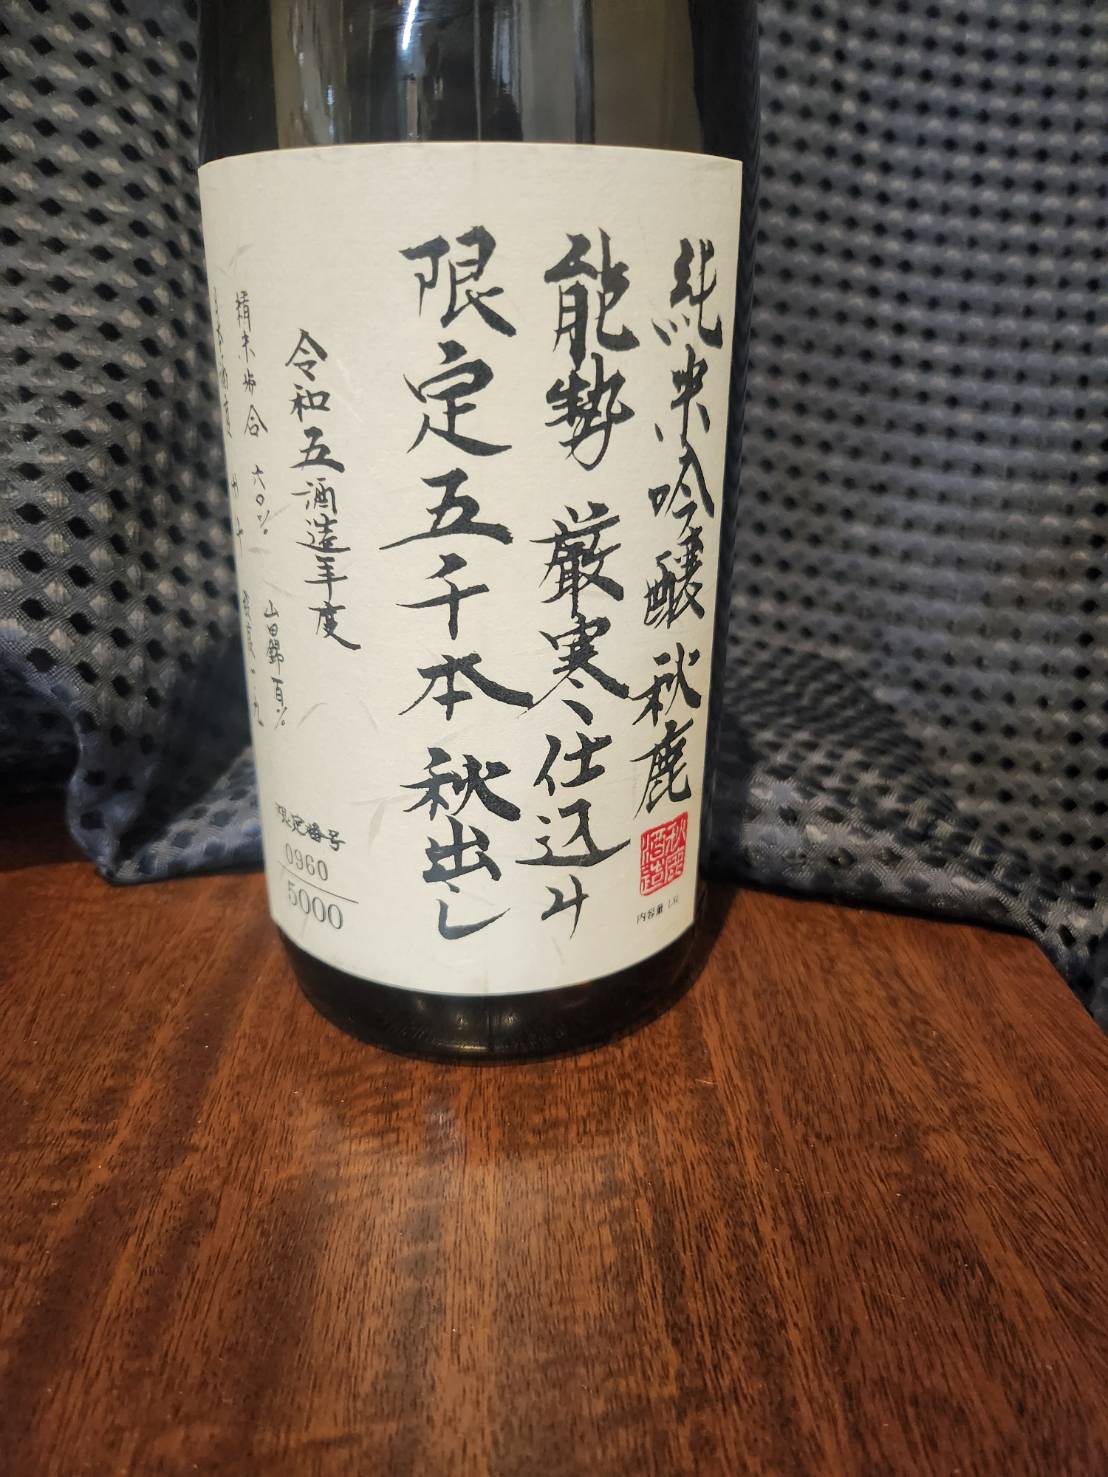 純米吟醸 秋鹿
秋鹿
酒造
内容量 1.8L
能勢 厳寒仕込み
限定五千本 秋出し
令和五酒造年度
精米歩合 六〇% 山田錦百%
限定番号
0960
5000